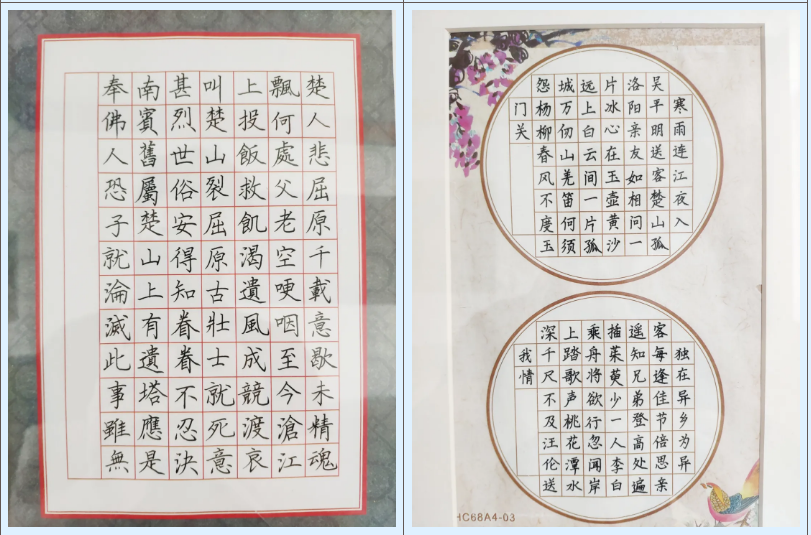 楚人悲屈原千載意歇未精魂
飄何處父老空哽咽至今滄江
上投飯救飢渴遺風成競渡哀
叫楚山裂屈原古壯士就死意
甚烈世俗安得知眷眷不忍決
南賓舊屬楚山上有遺塔應是
奉佛人恐子就淪滅此事雖無
寒雨连江夜入
吴平明送客楚山孤
洛阳亲友如相问一
片冰心在玉壶黄沙
远上白云间一片孤
城万仞山羌笛何须
怨杨柳春风不度玉
门关
独在异乡为异
客每逢佳节倍思亲
遥知兄弟登高处遍
插茱萸少一人李白
乘舟将欲行忽闻岸
上踏歌声桃花潭水
深千尺不及汪伦送
我情
HC68A4-03